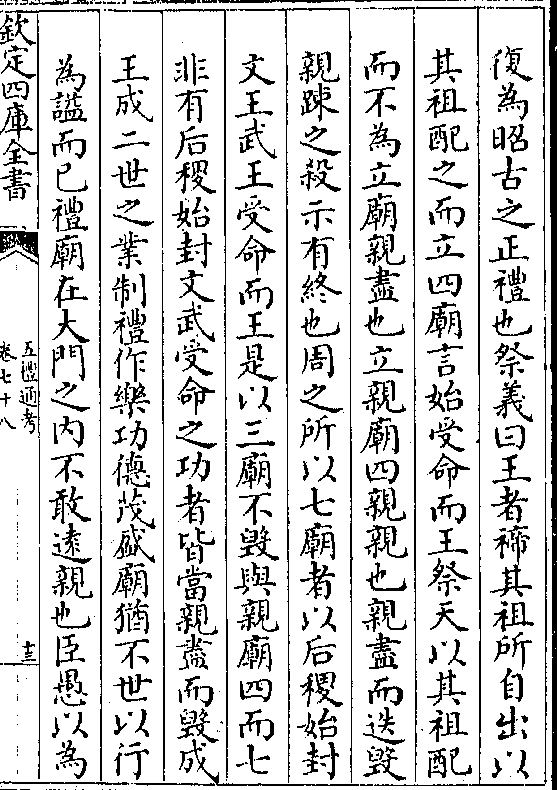 復為昭古之正禮也祭義曰王者禘其祖所自出以
其祖配之而立四廟言始受命而王祭天以其祖配
而不為立廟親盡也立親廟四親親也親盡而迭毀
親踈之殺示有終也周之所以七廟者以后稷始封
文王武王受命而王是以三廟不毀與親廟四而七
非有后稷始封文武受命之功者皆當親盡而毀成
王成二世之業制禮作樂功德茂盛廟猶不世以行
為諡而已禮廟在大門之内不敢逺親也臣愚以為
欽定四庫全書
五禮通考
卷七十八
十三